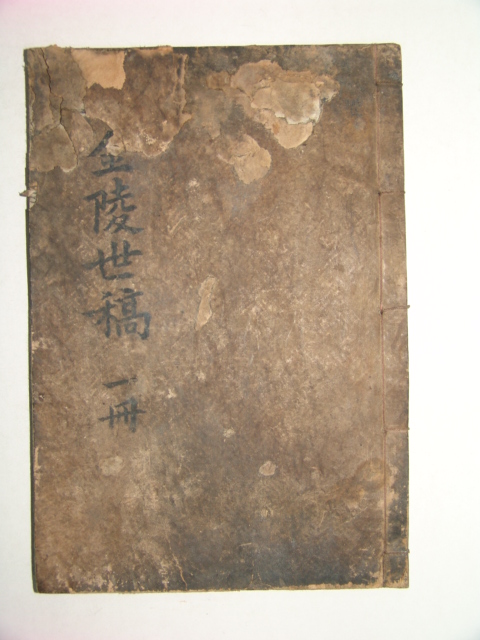 金陵世稿 一冊